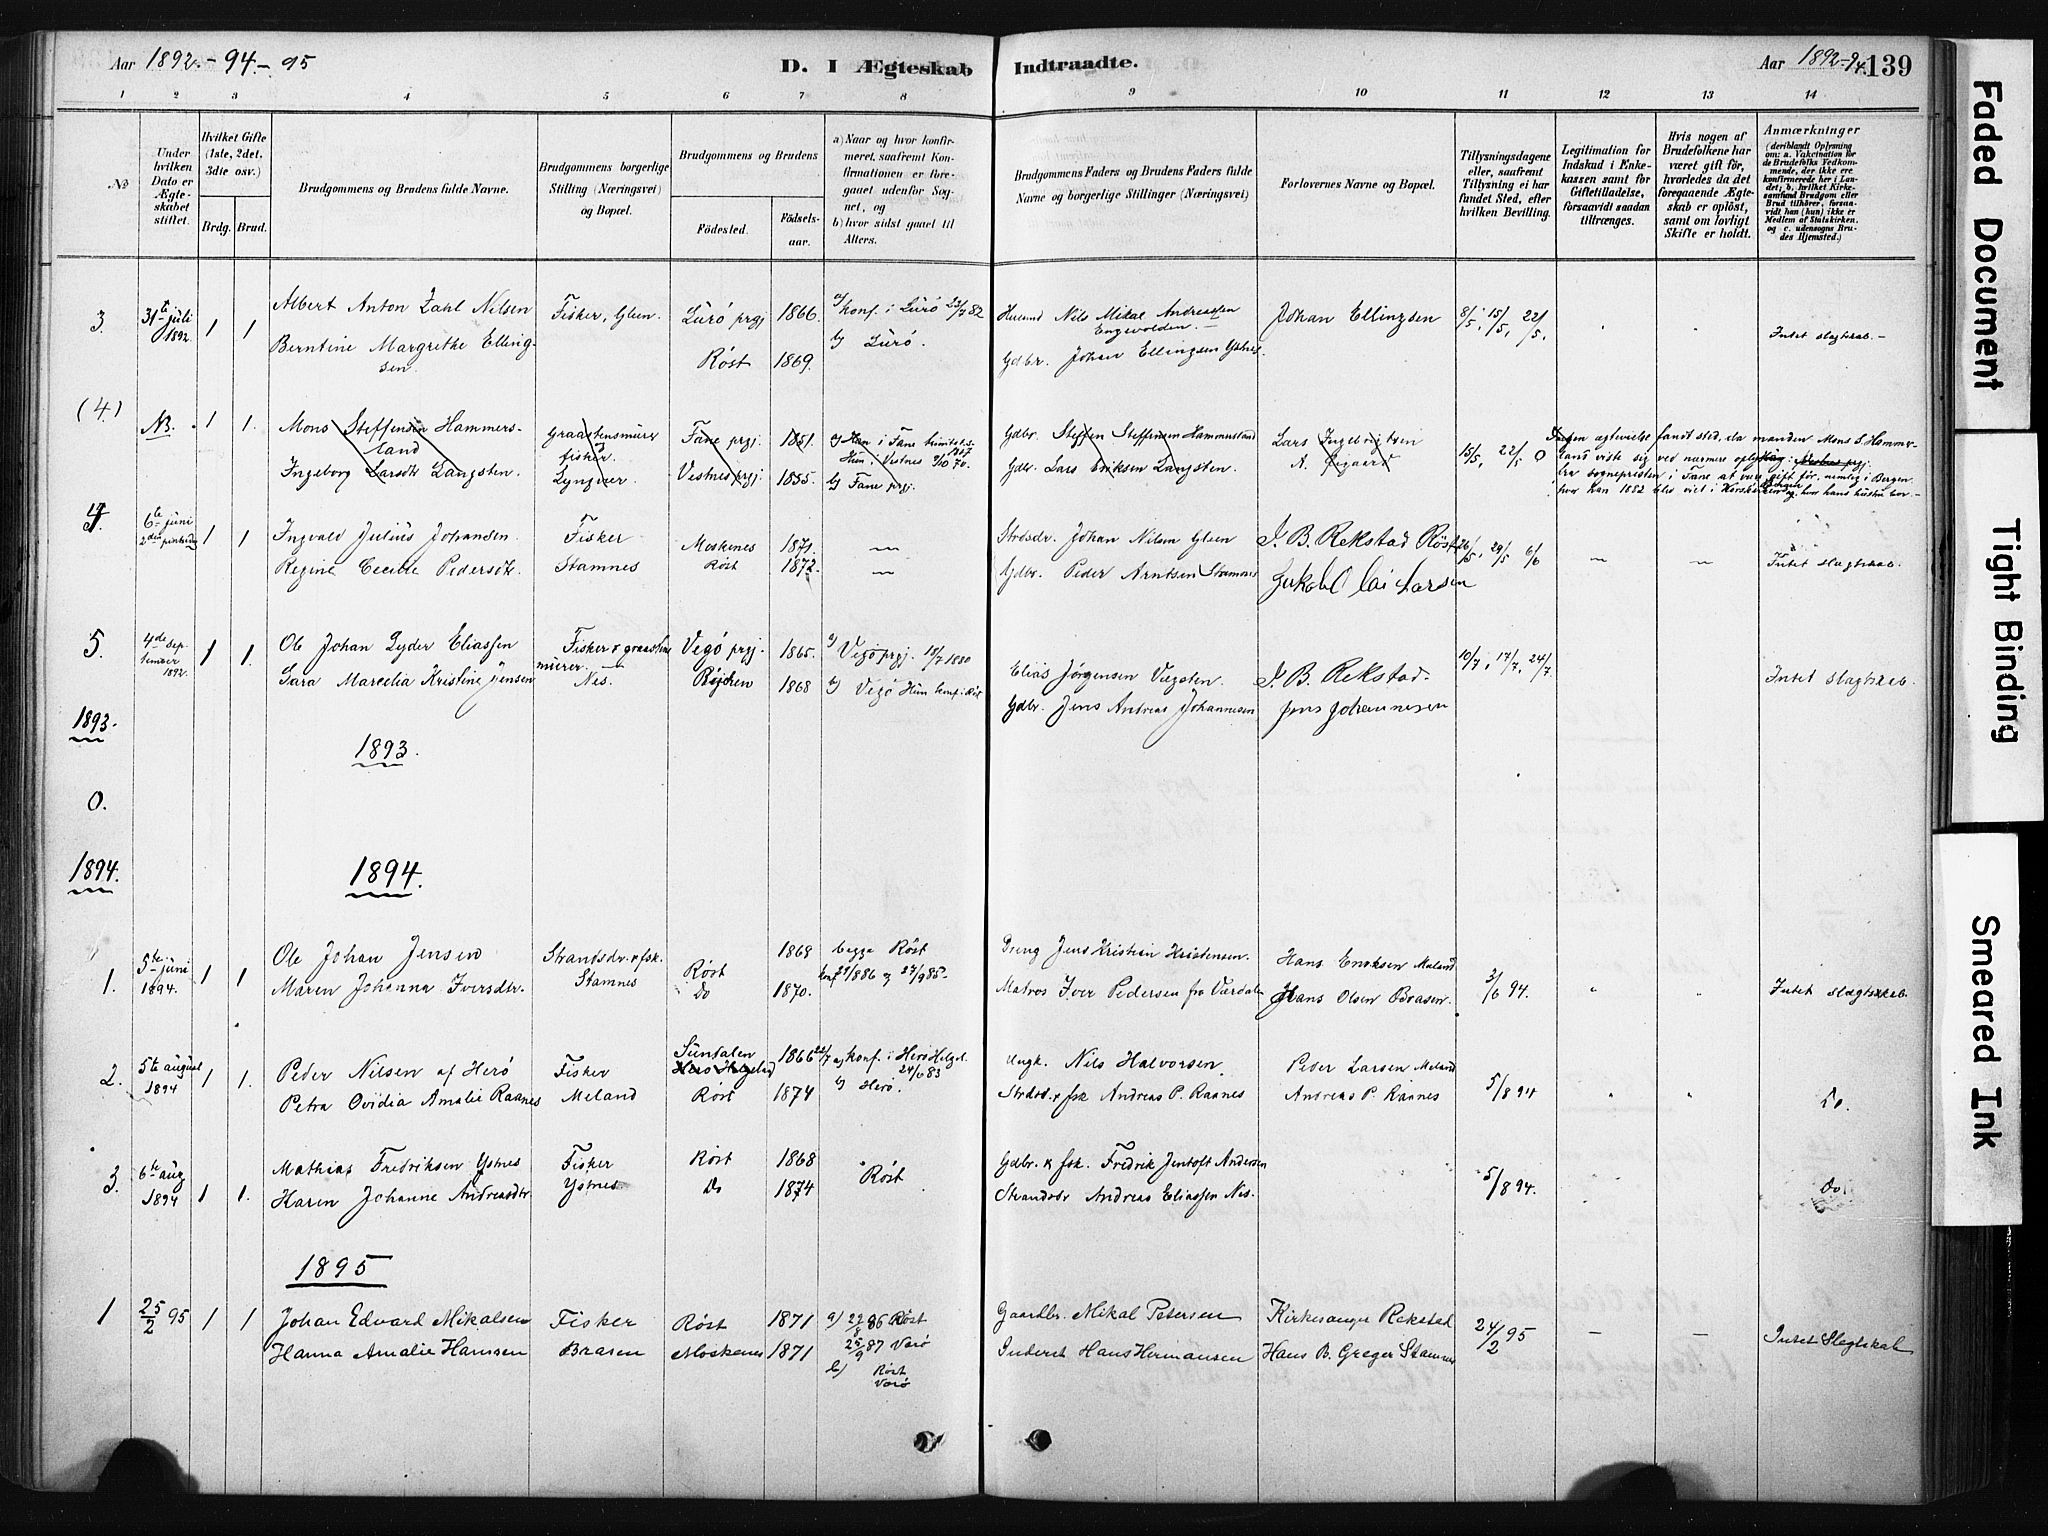 Aar 1892.-94-95
D. I Ægteskab Indtraadte.
Aar 1892-94. 139
1 2 3 4 5 6 7 8 9 10 11 12 13 14
№
Under hvilken Dato er Ægteskabet stiftet.
Hvilket Gifte (1ste, 2det, 3die osv.)
Brdg. Brud.
Brudgommens og Brudens fulde Navne.
Brudgommens borgerlige Stilling (Næringsvei) og Bopæl.
Brudgommens og Brudens
Födested.
Födselsaar.
a) Naar og hvor konfirmeret, saafremt Konfirmationen er foregaaet udenfor Sognet, og
b) hvor sidst gaaet til Alters.
Brudgommens Faders og Brudens Faders fulde Navne og borgerlige Stillinger (Næringsvei)
Forlovernes Navne og Bopæl.
Tillysningsdagene eller, saafremt Tillysning ei har fundet Sted, efter hvilken Bevilling.
Legitimation for Indskud i Enkekassen samt for Giftetilladelse, forsaavidt saadan tiltrænges.
Hvis nogen af Brudefolkene har været gift för, hvorledes da det foregaaende Ægteskab er oplöst, samt om lovligt Skifte er holdt.
Anmærkninger
(deriblandt Oplysning om: a. Vakcination for de Brudefolks Vedkommende, der ikke ere konfirmerede her i Landet; b. hvilket Kirkesamfund Brudgom eller Brud tilhörer, forsaavidt han (hun) ikke er Medlem af Statskirken, og c. udensogns Brudes Hjemsted.)
3. 31te juli 1892 1 1 Albert Anton Zahl Nilsen Fisker, Glien. Lurö prgj 1866. a) konf. i Lurö 23/7 82 Nils Mikal Andreassen Engevolden. Johan Ellingsen 8/5, 15/5, 22/5. Intet slagtskab.
Berntine Margrethe Ellingsen. Röst 1869. b) Lurö. Gdbr. Johan Ellingsen Ystnes.
(4.) NB. 1 1. Mons Steffensen Hammersland graastensmurer fisker Fane prgj. 1851. Gdbr. Steffen Steffensen Hammersland Lars Ingebrigtsen 15/5, 22/5 0
Ingeborg Larsdtr Langsten. Lyngvær Vestnes prgj. 1855. b) Fane prgj. Gdbr. Lars Eriksen Langsten.
Ingen egtevielse fandt sted, da manden Mons S. Hammersland viste sig ved nærmere
fra sognepresten i Fane at være gift för, nemlig i Bergen
hvor han 1882 blev viet i Korskirken, hvor hans hustru bor.
4. 6te juni 2den pintsedag 1 1 Ingvald Julius Johansen. Fisker Moskenes 1871. Strdsdr. Johan Nilsen Glien J. B. Rekstad Röst 26/5, 29/5 6/6 Intet slagtskab.
Regine Cecilie Pedersdtr. Stamnes Röst 1872. Gdbr. Peder Arntsen Stamnes Jakob Olai Larsen
5. 4de september 1892. 1 1. Ole Johan Lyder Eliassen Fisker & graastensmurer. Vegö prgj. 1865. a) Vegö prgj. 18/7 1880 Elias Jörgensen Vægsten. J. B. Rekstad. 10/7, 17/7, 24/7. Intet slagtskab.
Sara Marcelia Kristine Jensen Nes. 1868 b) Vegö Gdbr. Jens Andreas Johannesen Jens Johannesen
1893. 1893.
0.
1894. 1894.
1. 5te juni 1894. 1 1 Ole Johan Jensen Strandsdr. & fsk. Röst 1869 begge Röst Dreng Jens Kristian Kristensen. Hans Enoksen Meland 3/6 94. Intet slagtskab.
Maren Johanna Iversdtr. Stamnes Do 1870. Matros Iver Pedersen fra Værdalen Hans Olsen Brasen.
2. 5te august 1894 1 1. Peder Nilsen af Herö Fisker Sundalen Herö Helgeland 1866 22/7 a) konf. i Herö Helgel. 24/6 83 Ungk. Nils Halvorsen. Peder Larsen Meland 5/8 94 Do.
Petra Ovidia Amalie Raanes Meland Röst 1874 b) Herö. Strdsd. & fsk Andreas P. Raanes Andreas P. Raanes
3. 6te aug 1894 1 1. Mathias Fredriksen Ystnes Fisker Röst 1868 Röst Gdbr. & fsk. Fredrik Jentoft Andersen 5/8 94. Do.
Haren Johanne Andreasdtr. Ystnes Do 1874 Strandsdr Andreas Eliassen Nes.
1895
1 25/2 95 1 1 Johan Edvard Mikalsen Fisker Röst 1871 a) 29/8 86 Röst Gaardbr. Mikal Petersen Kirkesanger Rekstad 24/2 95 — — Intet Slegtskab
Hanna Amalie Hansen Brasen Moskenes 1871 25/9 87 Værö Inderst Hans Hermansen Hans B. Greger Stamnes
b) Röst Værö
Faded Document
Tight Binding
Smeared Ink